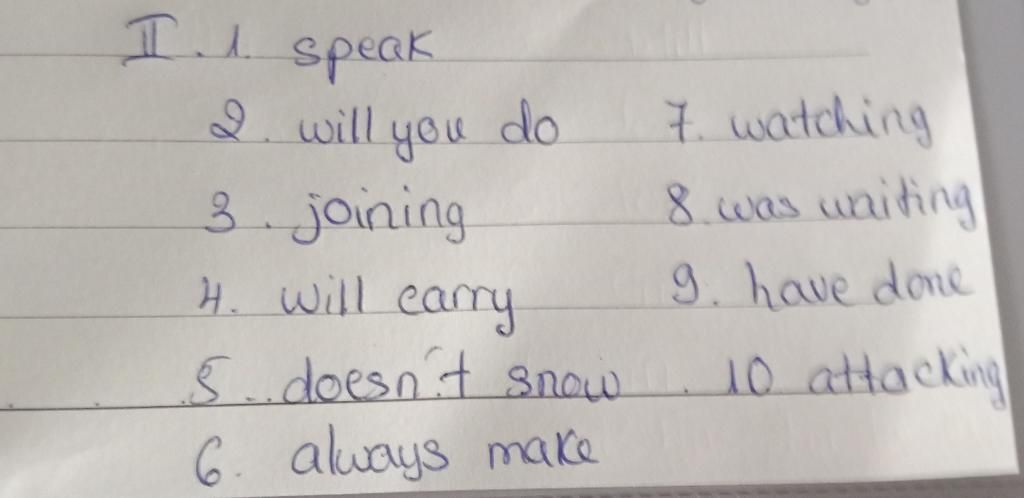 II. 1. speak
2. will you do 7. watching
3. joining 8. was waiting
4. will carry 9. have done
5. doesn't snow 10 attacking
6. always make